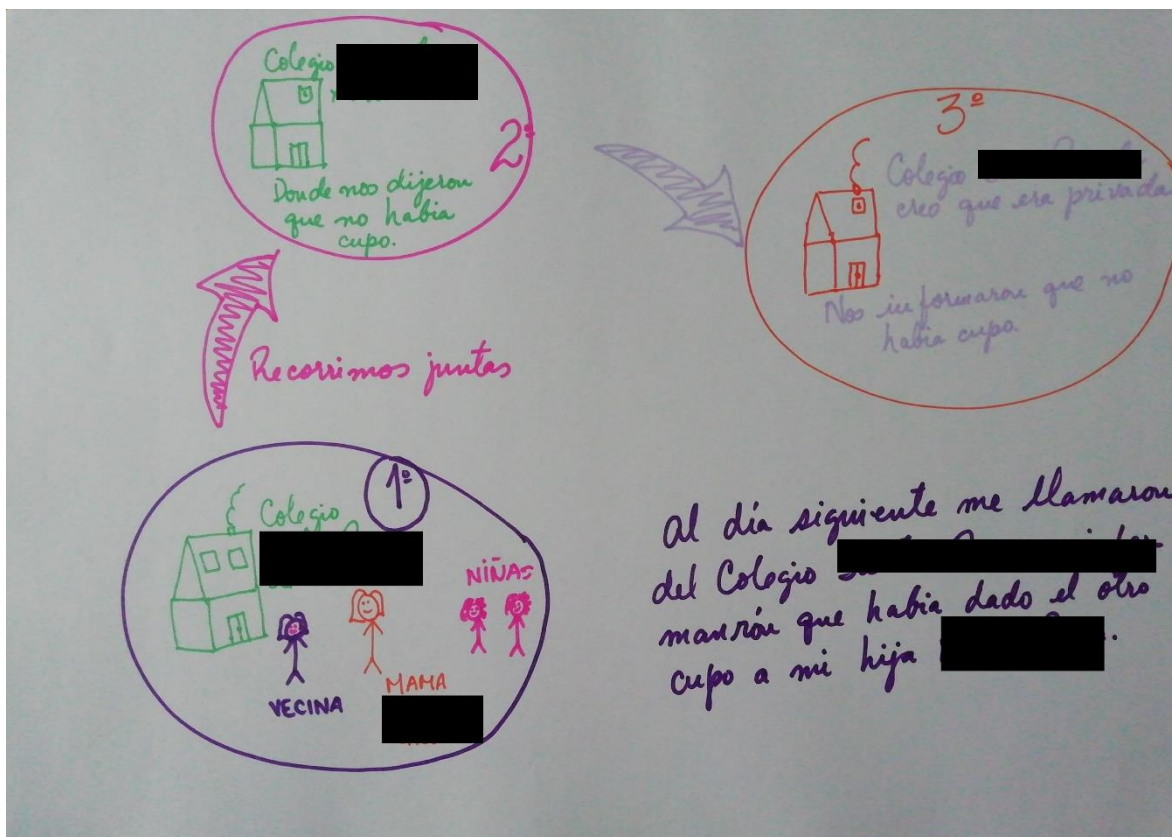 Colegio
2º
Donde nos dijeron
que no habia
cupo.
3º
Colegio
creo que era privada
Nos informaron que no
habia cupo.
Recorrimos juntas
1º
Colegio
NIÑAS
VECINA
MAMA
Al día siguiente me llamaron
del Colegio
que habia dado el otro
cupo a mi hija